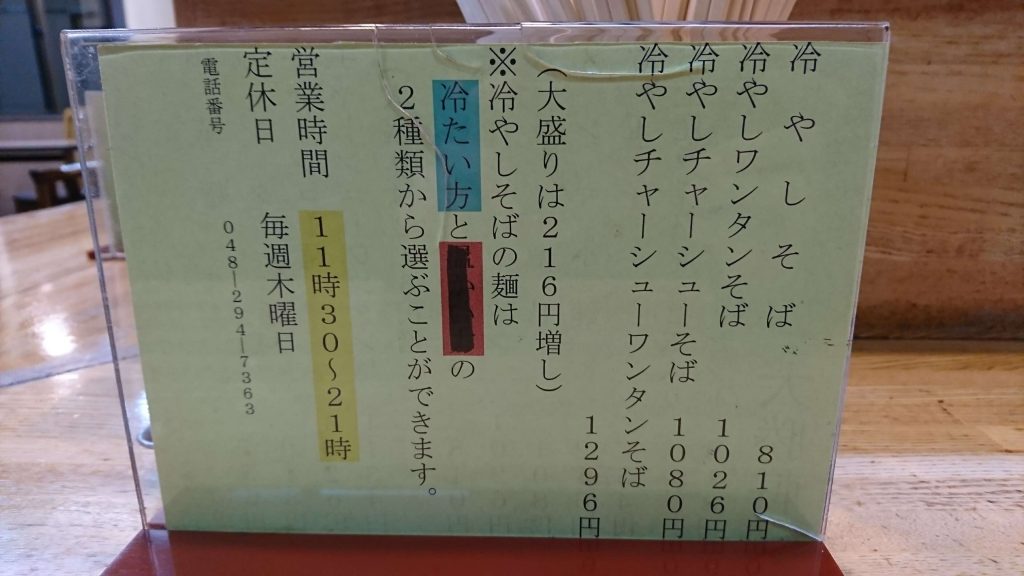 冷やしそば 810円
冷やしワンタンそば 1026円
冷やしチャーシューそば 1080円
冷やしチャーシューワンタンそば
1296円
(大盛りは216円増し)
※冷やしそばの麺は
冷たい方との
2種類から選ぶことができます。
営業時間 11時30~21時
定休日 毎週木曜日
電話番号 048-294-7363